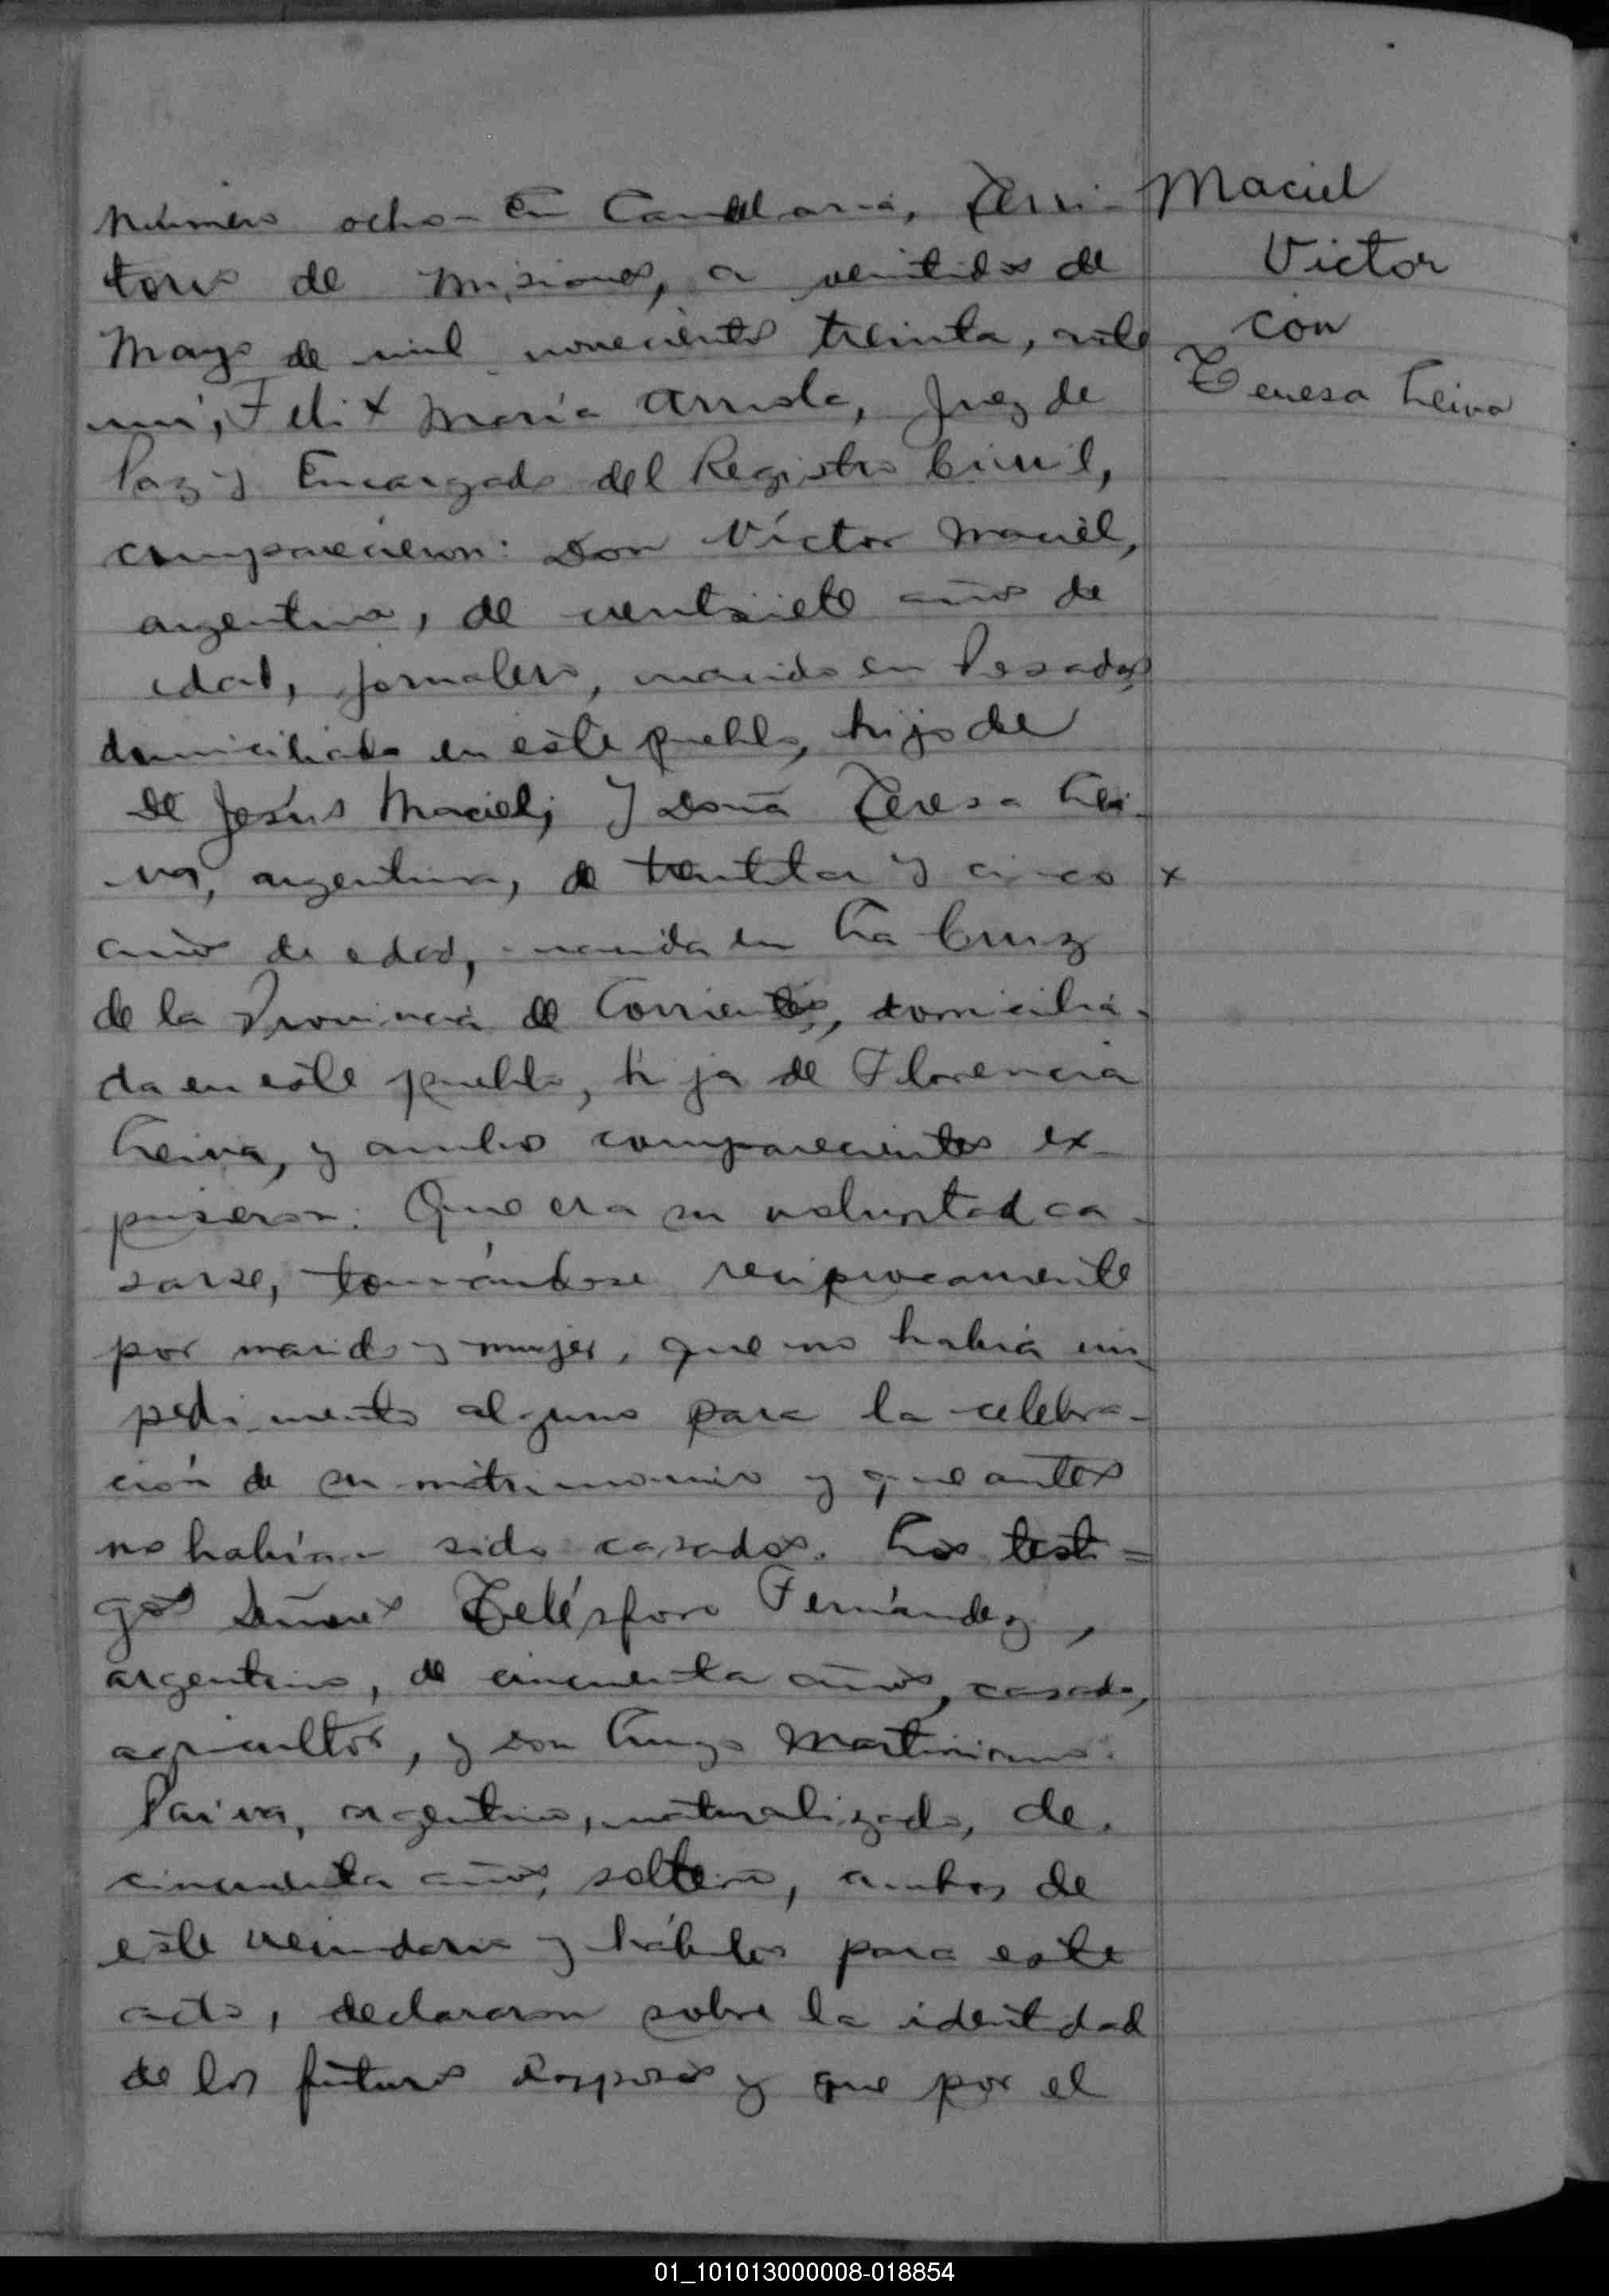 Maciel
Victor
con
Teresa Leiva
Número ocho - En Candelaria, Terri-
torio de Misiones, a veintidos de
Mayo de mil novecientos treinta, ante
mí, Felix María Arriola, Juez de
Paz y Encargado del Registro Civil,
comparecieron: Don Víctor Maciel,
argentino, de veintisiete años de
edad, jornalero, nacido en Posadas
domiciliado en este pueblo, hijo de
de Jesús Maciel; y Doña Teresa Lei-
va, argentina, de treinta y cinco x
años de edad, nacida en La Cruz
de la Provincia de Corrientes, domicilia-
da en este pueblo, hija de Florencia
Leiva, y ambos comparecientes ex-
pusieron: Que era su voluntad ca-
sarse, tomándose reciprocamente
por marido y mujer, que no había im-
pedimento alguno para la celebra-
ción de su matrimonio y que antes
no habían sido casados. Los testi=
gos Señores Telésforo Fernández,
argentino, de cincuenta años, casado,
agricultor, y don Martiniano
Paiva, argentino, naturalizado, de
cincuenta años, soltero, ambos de
este vecindario y hábiles para este
acto, declararon sobre la identidad
de los futuros esposos y que por el
01_101013000008-018854